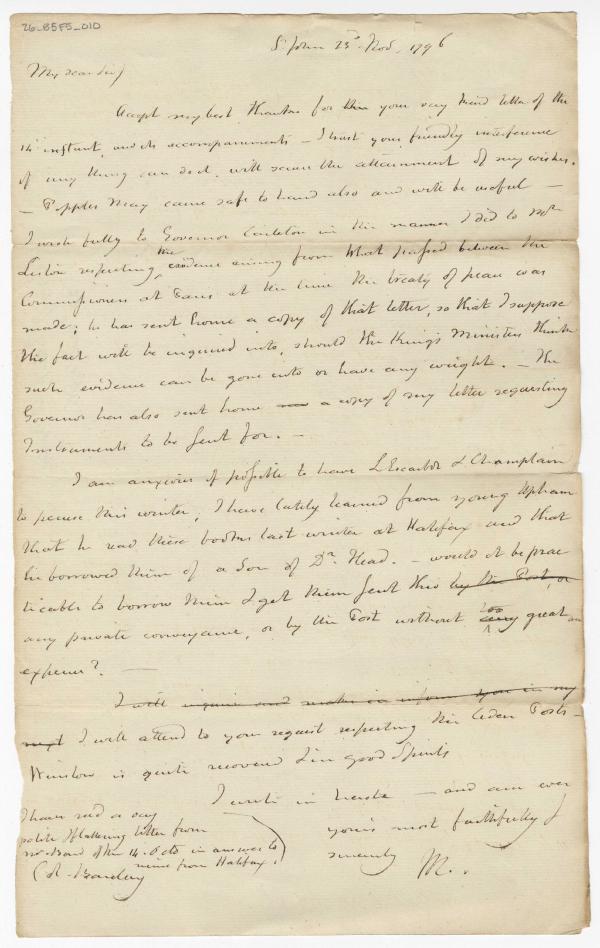 26_85F5_010
St John 23d Nov. 1796
My dear Sir
Accept my best thanks for your very kind letter of the
14th instant, and its accompaniments – I trust your friendly interference
if any thing can do it, will secure the attainment of my wishes.
– Popples Map came safe to hand also and will be useful –
I wrote fully to Governor Carleton in the manner I did to Mr
Liston respecting the evidence arising from what passed between the
Commissioners at Paris at the time the treaty of peace was
made; he has sent home a copy of that letter, so that I suppose
the fact will be inquired into, should the King's Ministers think
such evidence can be gone into or have any weight. – The
Governor has also sent home a copy of my letter requesting
Instruments to be sent for. –
I am anxious if possible to have L'Escarbot & Champlain
to peruse this winter; I have lately learned from young Upham
that he read these books last winter at Halifax and that
he borrowed them of a Son of Dr. Head. – would it be prac
ticable to borrow them & get them sent thro by the Post, or
any private conveyance, or by the Post without too any great an
expense? –
I will inquire and make in inform you in my
next I will attend to your request respecting the Ceder Posts –
Winslow is quite recovered & in good Spirits
I write in haste – and am ever
yours most faithfully &
sincerely M.
I have recd a very
polite & flattering letter from
Mr Bond of the 14. Octo in answer to
mine from Halifax.
Col. Barclay